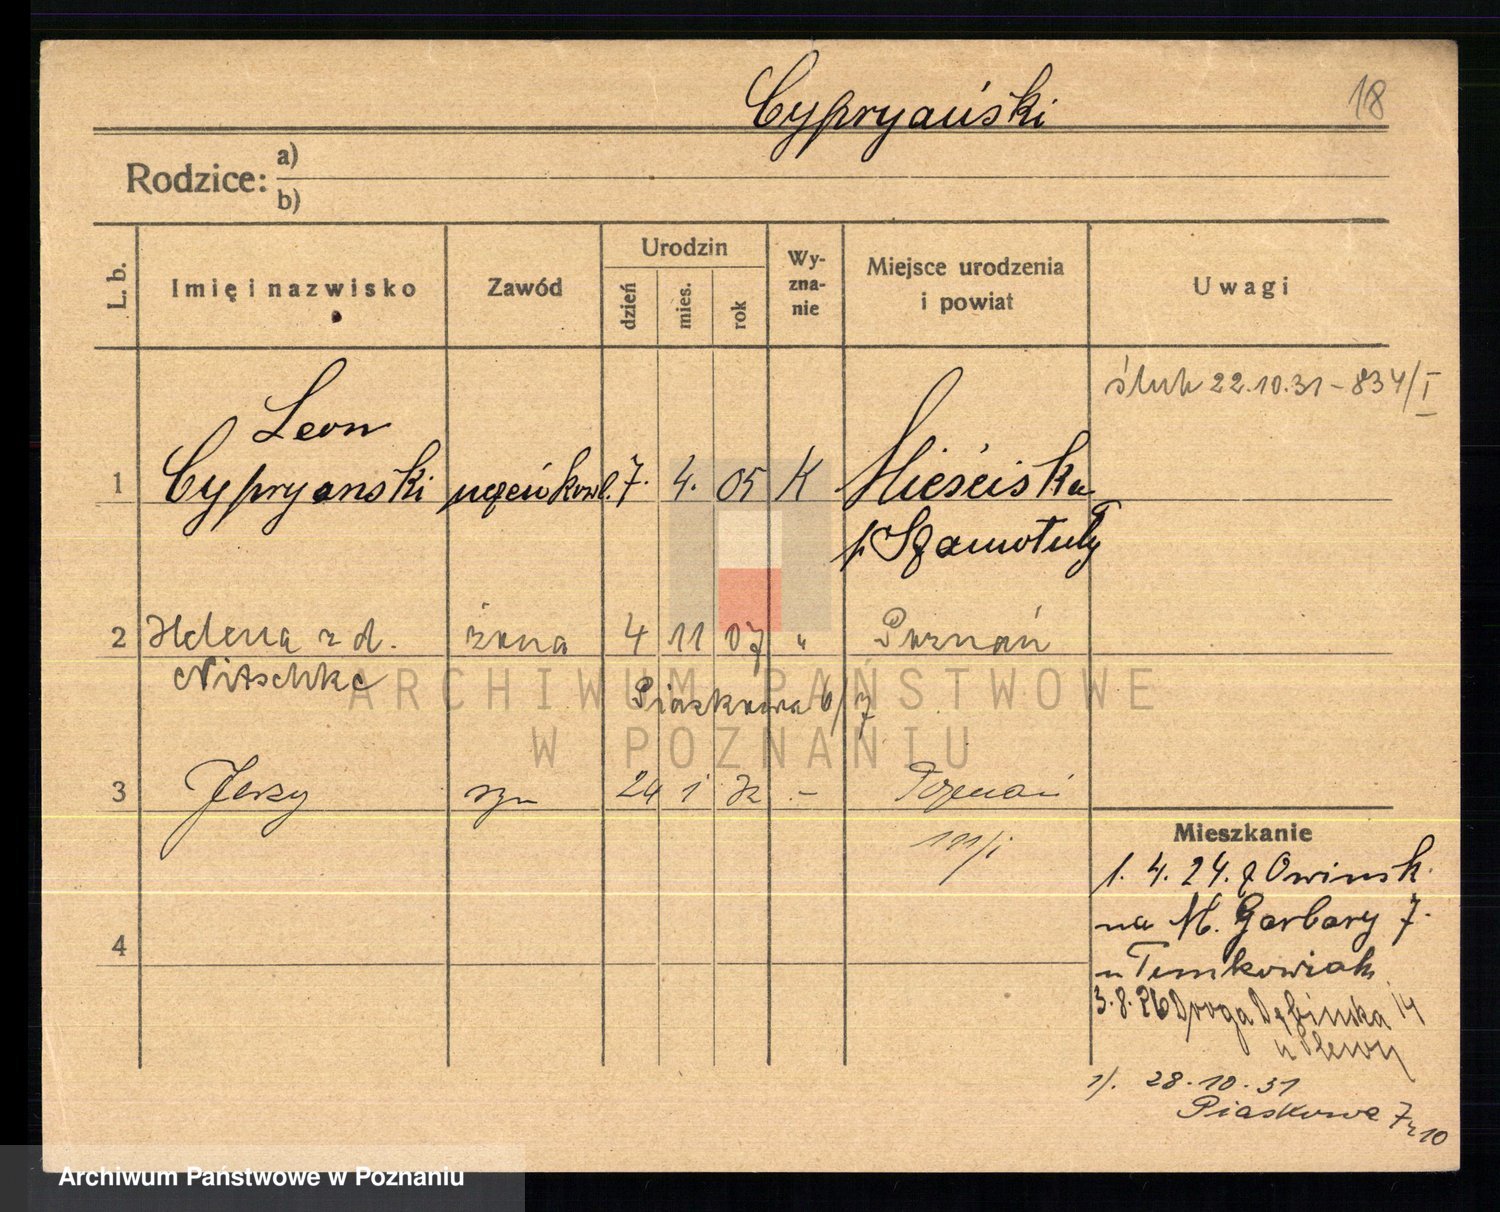 18
Cypryański
Rodzice:
a)
b)
L. b.
Imię i nazwisko
Zawód
Urodzin
dzień
mies.
rok
Wy-
zna-
nie
Miejsce urodzenia
i powiat
Uwagi
ślub 22.10.31 – 834/I
Leon
1 Cypryanski uczeń kowl. 7. 4. 05 K Mieściska
p. Szamotuły
2 Helena z d. żona 4 11 07 " Poznań
Nitschke
Piaskowa 6/7
3 Jerzy syn 24 1 32 – Poznań
191/I
4
Mieszkanie
1. 4. 24. z Owinsk.
na M. Garbary 7.
u Timkowiak
3.8.26 Droga Dębinska 14
u
1/. 28.10.31
Piaskowa 7 10
ARCHIWUM PAŃSTWOWE
W POZNANIU
Archiwum Państwowe w Poznaniu